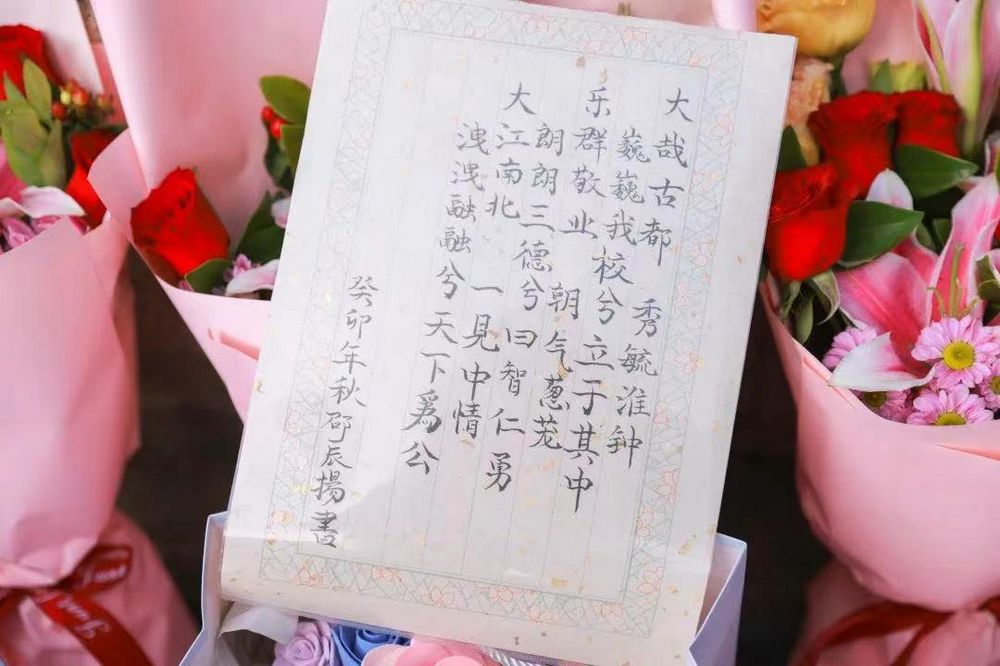 大哉古都 秀毓淮钟
巍巍我校兮立于其中
乐群敬业 朝气葱茏
朗朗三德兮曰智仁勇
大江南北 一见中情
洩洩融融兮天下爲公
癸卯年秋邵辰揚書